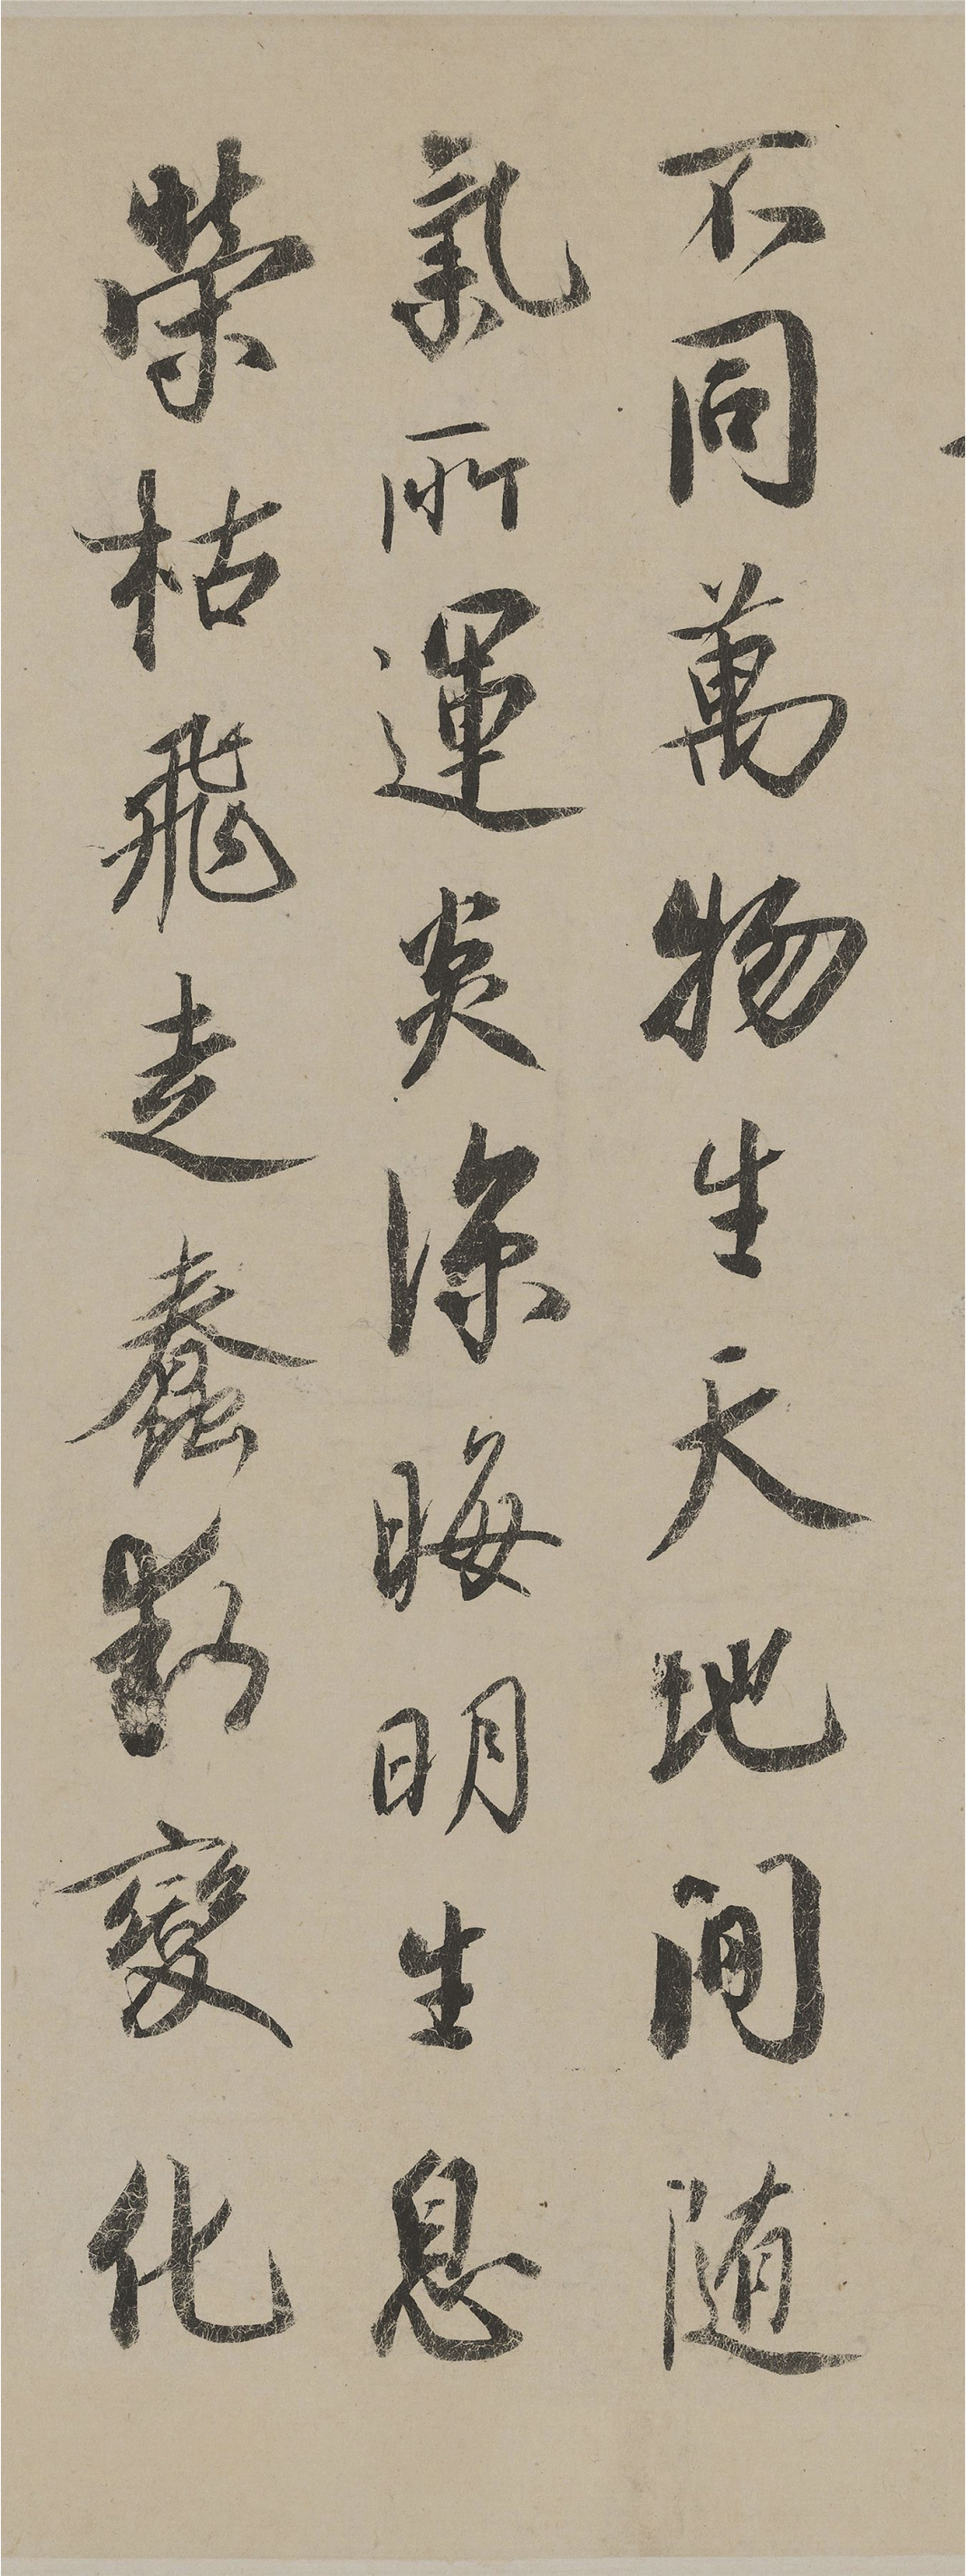 不同萬物生天地間随
氣所運炎涼晦明生息
榮枯飛走蠢動變化